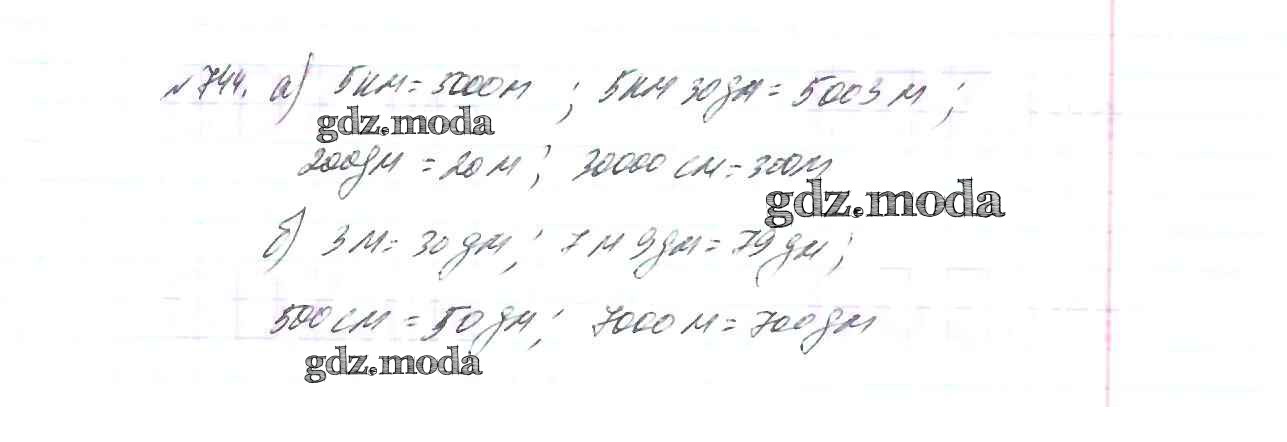 №744. а) 5км=5000м ; 5км 30дм=5003м;
gdz.moda
200дм=20м; 30000см=300м
gdz.moda
б) 3м=30дм; 7м 9дм=79дм;
500см=50дм; 7000м=700дм
gdz.moda